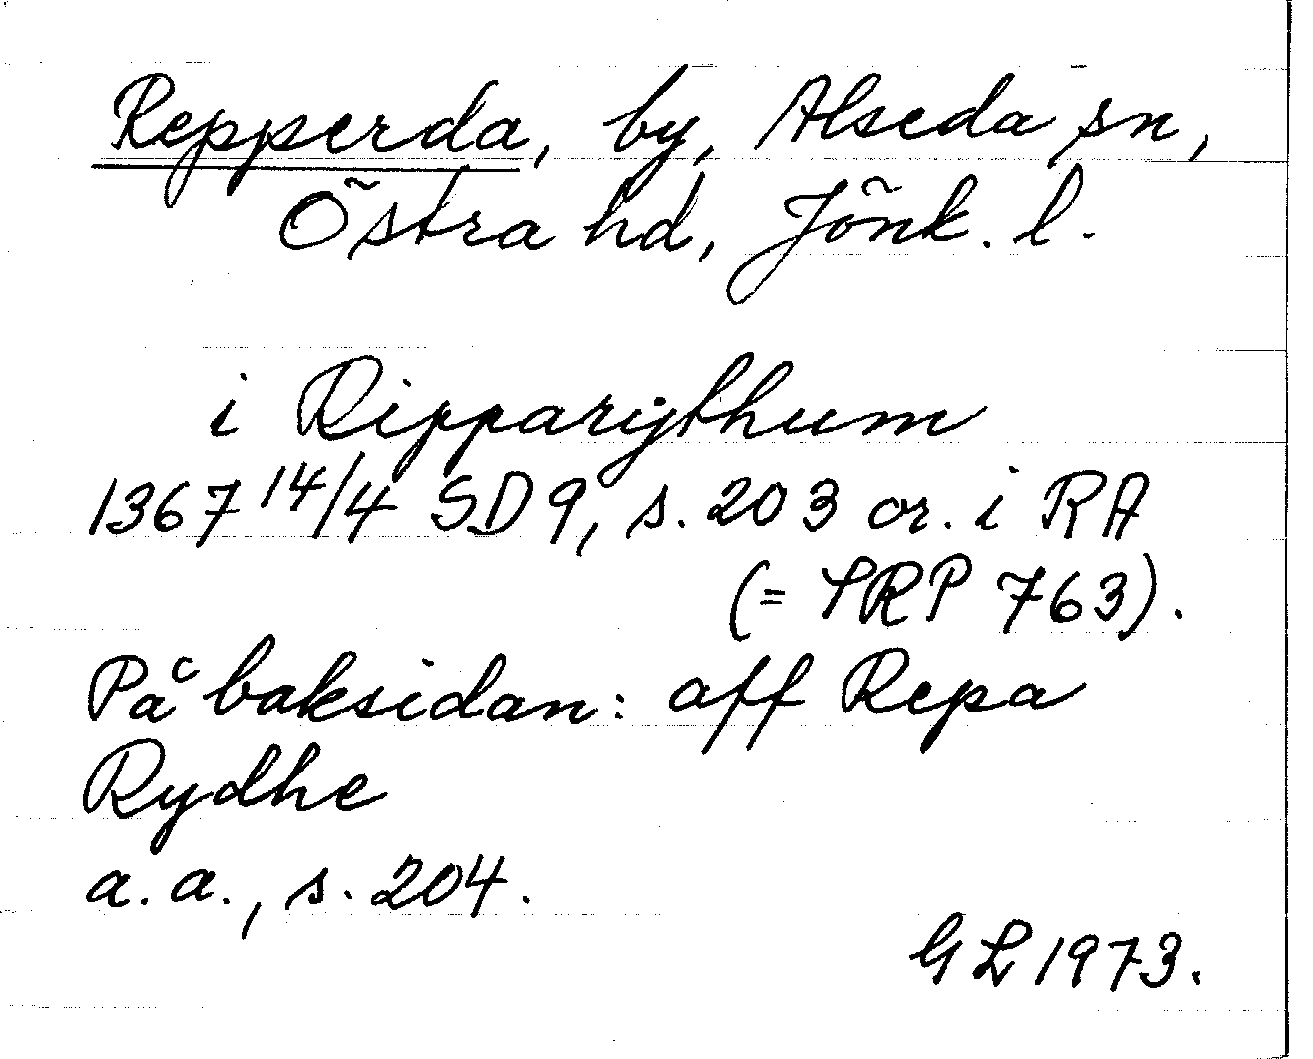 Repperda, by, Alseda sn,
Östra hd, Jönk. l.
i Ripparijthum
1367 14/4 SD 9, s. 203 or. i RA
(= SRP 763).
På baksidan: aff Repa
Rydhe
a. a., s. 204.
GL 1973.